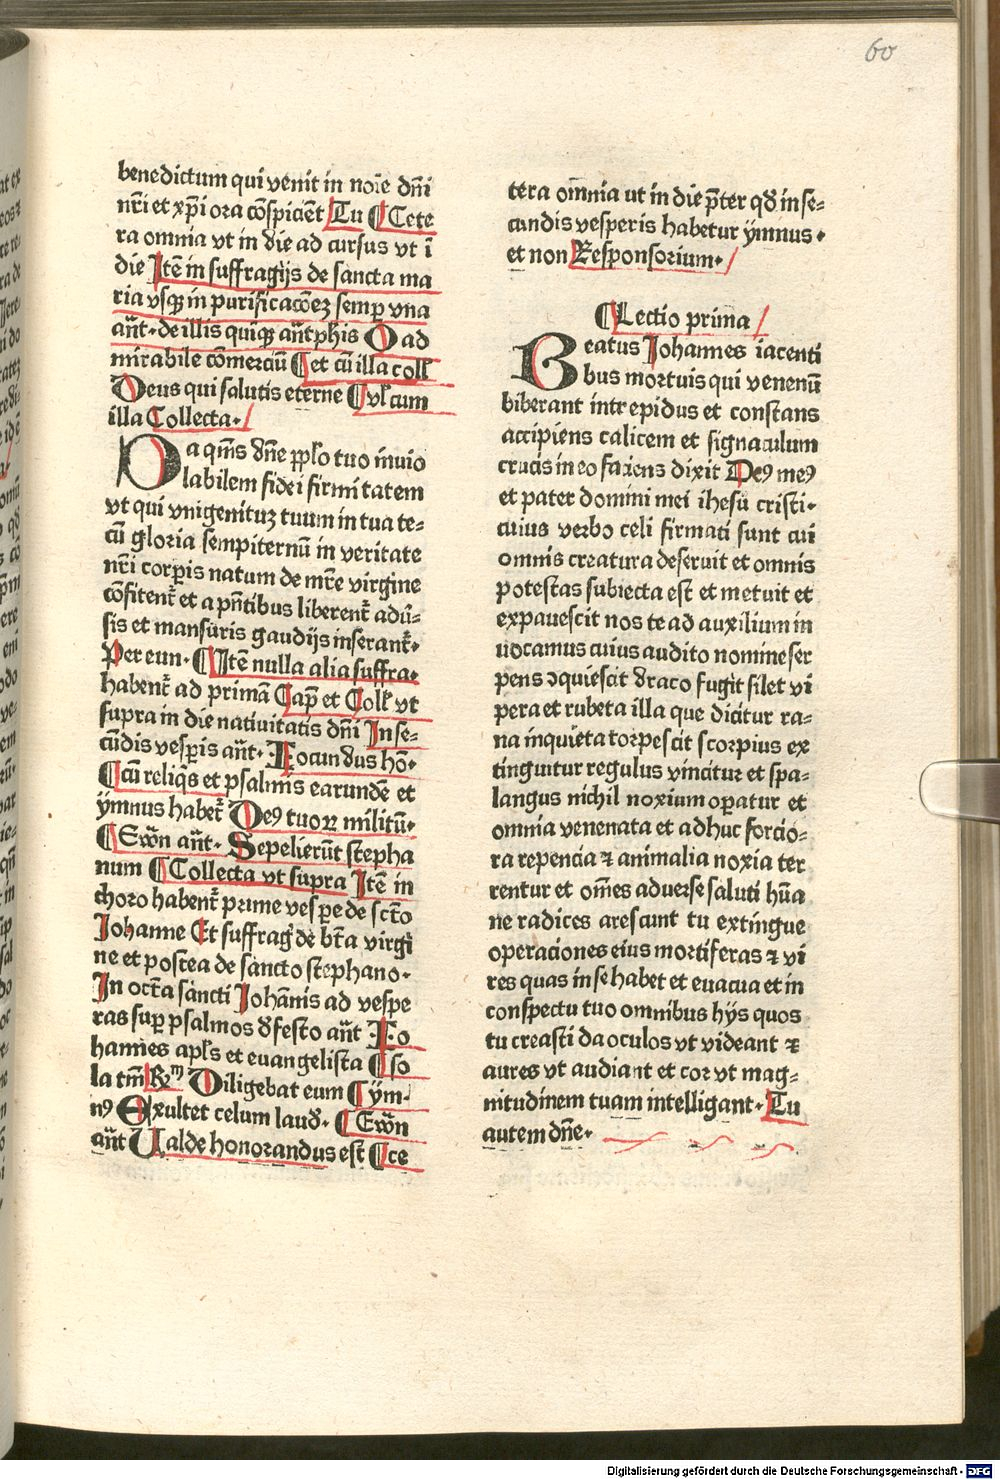 60
benedictum qui venit in noīe dn̄i
nr̄i et xp̄i ora cōspiciēt Tu ¶ Cete
ra omnia vt in die ad cursus vt ī
die Itē in suffragijs de sancta ma
ria vsqꝫ in purificacōeꝫ semꝑ vna
an̄t· de illis quiqꝫ an̄tphis O ad
mirabile cōmerciū ¶ et cū illa coll̄
Deus qui salutis eterne ¶ vl̄ cum
illa Collecta·
Da qm̄s dn̄e ppl̄o tuo inuio
labilem fidei firmitatem
vt qui vnigenituꝫ tuum in tua te⸗
cū gloria sempiternū in veritate
nr̄i corꝑis natum de mr̄e virgine
cōfitent᷑ et a pn̄tibus liberent᷑ adū⸗
sis et mansuris gaudijs inserant᷑·
Per eun· ¶ Itē nulla alia suffra⸗
habent᷑ ad primā Cap̄ et Coll̄ vt
supra in die natiuitatis dn̄i In se⸗
cūdis vesꝑis an̄t· Iocundus hō·
¶ cū reliqs̄ et psalmis earundē et
ẏmnus habet᷑ Deꝰ tuoꝝ militū·
¶ Ewn̄ an̄t· Sepelierūt stepha
num ¶ Collecta vt supra Itē in
choro habent᷑ prime vesꝑe de sct̄o
Johanne Et suffraḡ de bt̄a virgī
ne et postea de sancto stephano·
In oct̄a sancti Johānis ad vespe
ras suꝑ psalmos d̄ festo an̄t Io
hannes apl̄s et euangelista ¶ so
la tm̄ Rm̄ Diligebat eum ¶ ẏm⸗
nꝰ Exultet celum laud̄· ¶ Ewn̄
an̄t Ualde honorandus est ¶ ce
tera omnia ut in die p̄ter qd̄ in se⸗
cundis vesperis habetur ẏmnus·
et non Responsorium·
¶ Lectio prima
Beatus Johannes iacenti
bus mortuis qui venenū
biberant intrepidus et constans
accipiens calicem et signaculum
crucis in eo faciens dixit Deꝰ meꝰ
et pater domini mei ihesū cristi·
cuius verbo celi firmati sunt cui
omnis creatura deseruit et omnis
potestas subiecta est et metuit et
expauescit nos te ad auxilium in
uocamus cuius audito nomine ser
pens ↄquiescit draco fugit silet vi
pera et rubeta illa que dicitur ra⸗
na inquieta torpescit scorpius ex
tinguitur regulus vincitur et spa⸗
langus nichil noxium oꝑatur et
omnia venenata et adhuc forcio⸗
ra repencia ꝛ animalia noxia ter
rentur et om̄es aduerse saluti hūa
ne radices arescunt tu extingue
operaciones eius mortiferas ꝛ vi
res quas in se habet et euacua et in
conspectu tuo omnibus hijs quos
tu creasti da oculos vt videant ꝛ
aures vt audiant et cor vt mag⸗
nitudinem tuam intelligant· Tu
autem dn̄e·
Digitalisierung gefördert durch die Deutsche Forschungsgemeinschaft - DFG